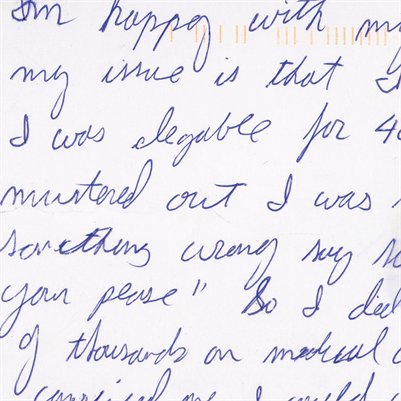 I'm happy with my
my issue is that I
I was elegable for 40
mustered out I was
something wrong say so
your pease" So I did
of thousands on medical
convinced me I could